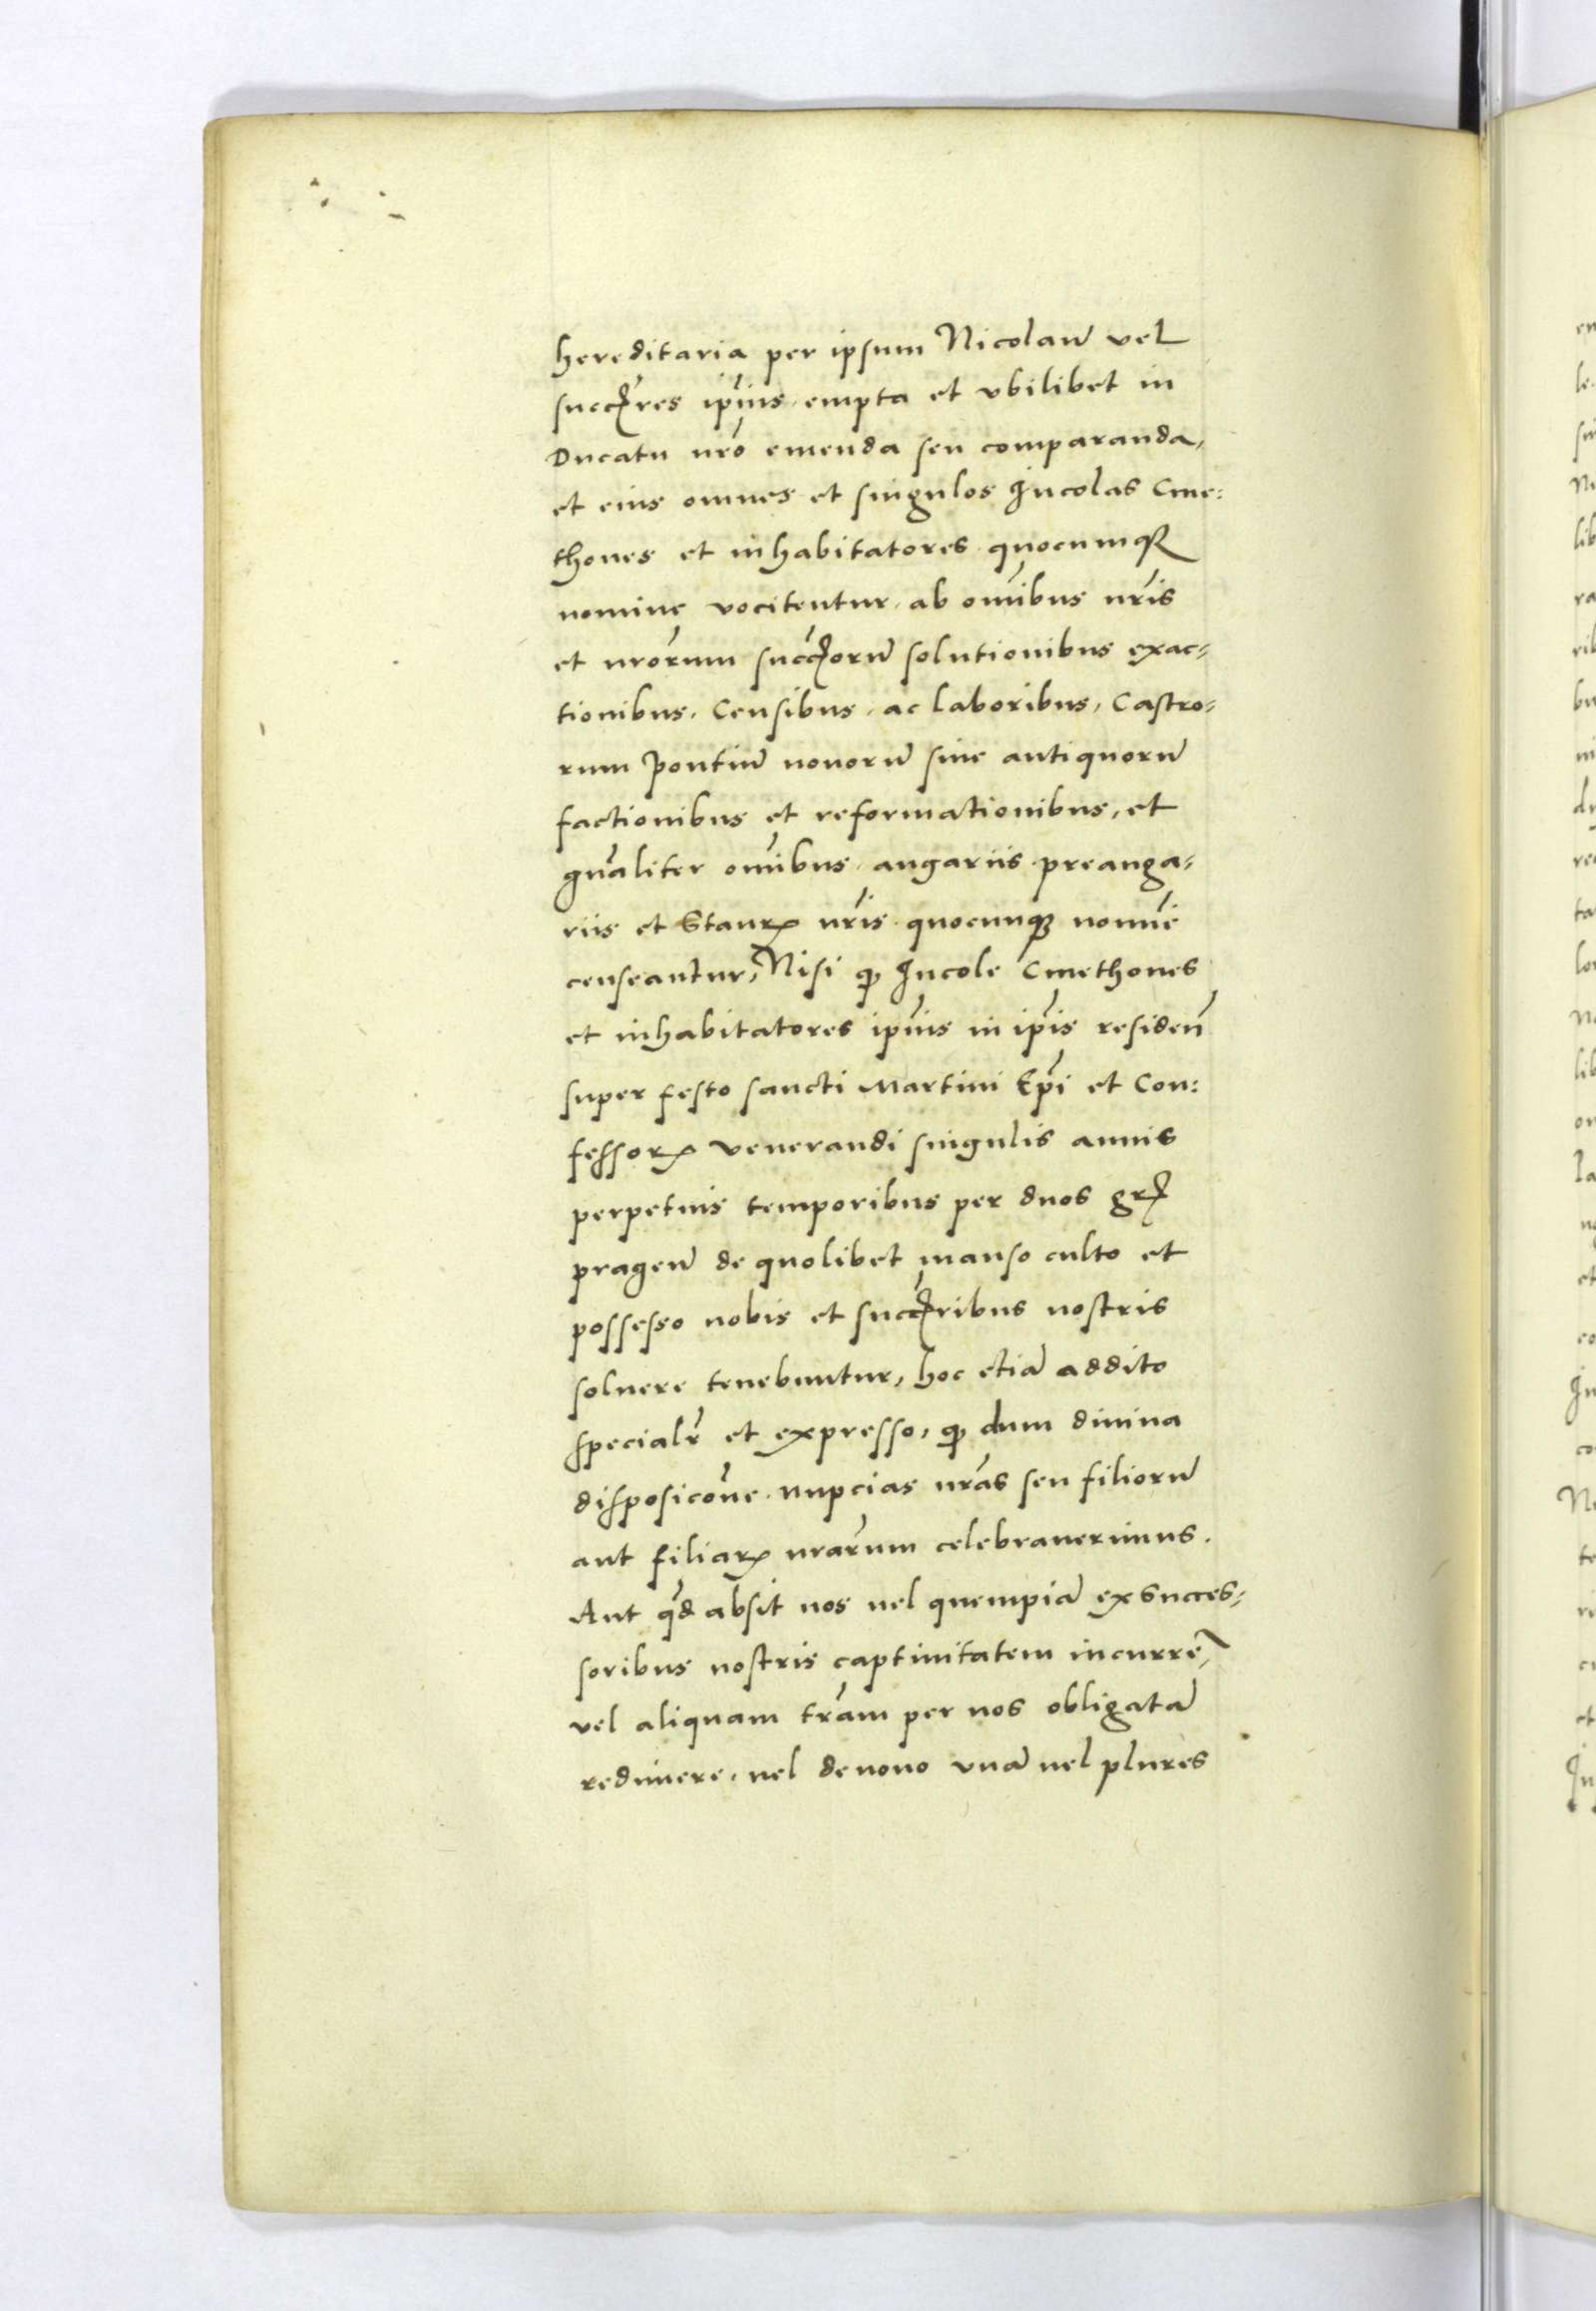 hereditaria per ipsum Nicolau͂ vel
succꝭres ip͂ius empta et vbilibet in
Ducatu nr͂o emenda seu comparanda,
et eius omnes et singulos Incolas Cme:
thones et inhabitatores quocumqꝫ
nomine vocitentur, ab om͂ibus nr͂is
et nr͂orum succꝭoru͂ solutionibus exac-
tionibus, Censibus, ac laboribus, Castro-
rum Pontiu͂ nouoru͂ siue antiquoru͂
factionibus et reformationibus, et
gn͂aliter om͂ibus angariis preanga-
riis et Stauꝝ nr͂is quocunqꝫ nomi͂e
censeantur, Nisi ꝙ Incole Cmethones
et inhabitatores ip͂ius in ip͂is residen͂
super festo sancti Martini Ep͂i et Con:
fessoꝝ venerandi singulis annis
perpetuis temporibus per duos grꝭ
pragen͂ de quolibet manso culto et
possesso nobis et succꝭribus nostris
soluere tenebuntur, hoc etia͂ addito
specialr͂ et expresso, ꝙ dum diuina
disposico͂ne nupcias nr͂as seu filioru͂
aut filiaꝝ nr͂arum celebrauerimus.
Aut qd͂ absit nos uel quempia͂ ex succes-
soribus nostris captiuitatem incurre͂,
vel aliquam tr͂am per nos obligata͂
redimere, uel denouo vna͂ uel plures